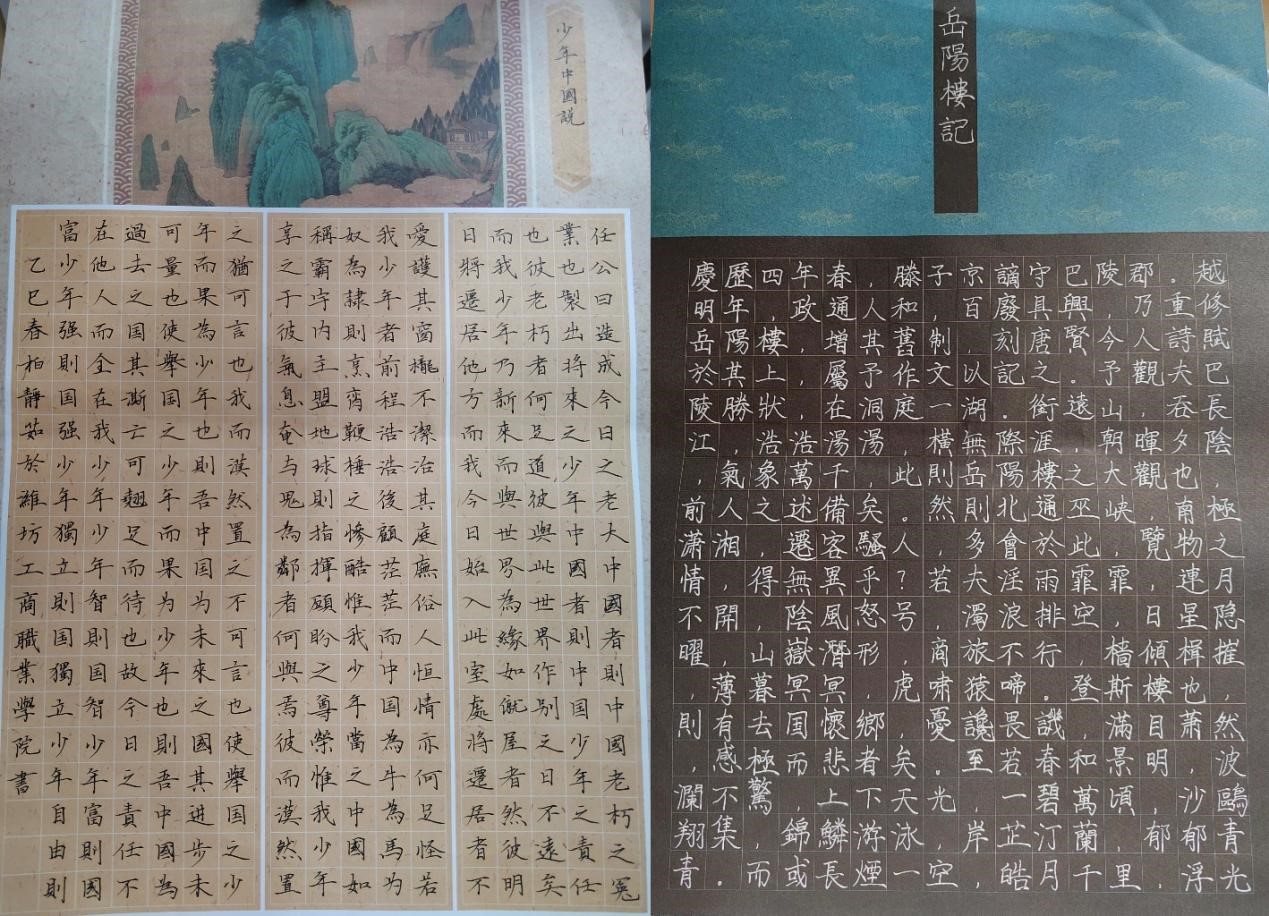 少年中國説
任公曰造成今日之老大中國者則中國老朽之冤
業也製出將來之少年中國者則中国少年之責任
也彼老朽者何足道彼與此世界作别之日不遠矣
而我少年乃新來而與世界為緣如僦屋者然彼明
日將遷居他方而我今日始入此室處將遷居者不
愛護其窗櫳不潔治其庭廡俗人恒情亦何足怪若
我少年者前程浩浩後顧茫茫而中国為牛為馬为
奴為隸則烹臠鞭棰之惨酷惟我少年當之中國如
稱霸宇内主盟地球則指揮顧盼之尊榮惟我少年
享之于彼氣息奄与鬼為鄰者何與焉彼而漠然置
之猶可言也我而漠然置之不可言也使舉国之少
年而果為少年也則吾中国为未來之國其进步未
可量也使舉国之少年而果为少年也則吾中國為
過去之国其澌亡可翘足而待也故今日之責任不
在他人而全在我少年少年智則国智少年富則國
富少年强則国强少年獨立則国獨立少年自由則
乙巳春柏靜茹於濰坊工商職業學院書
岳陽樓記
慶歷四年春，滕子京謫守巴陵郡。越
明年，政通人和，百廢具興，乃重修
岳陽樓，增其舊制，刻唐賢今人詩賦
於其上，屬予作文以記之。予觀夫巴
陵勝狀，在洞庭一湖。銜遠山，吞長
江，浩浩湯湯，横無際涯，朝暉夕陰
，氣象萬千，此則岳陽樓之大觀也，
前人之述備矣。然則北通巫峡，南極
潇湘，遷客騷人，多會於此，覽物之
情，得無異乎？若夫淫雨霏霏，連月
不開，陰風怒号，濁浪排空，日星隐
曜，山嶽潛形，商旅不行，檣傾楫摧
，薄暮冥冥，虎啸猿啼。登斯樓也，
則有去国懷鄉，憂讒畏譏，滿目蕭然
，感極而悲者矣。至若春和景明，波
瀾不驚，上下天光，一碧萬頃，沙鷗
翔集，錦鱗游泳，岸芷汀蘭，郁郁青
青。而或長煙一空，皓月千里，浮光